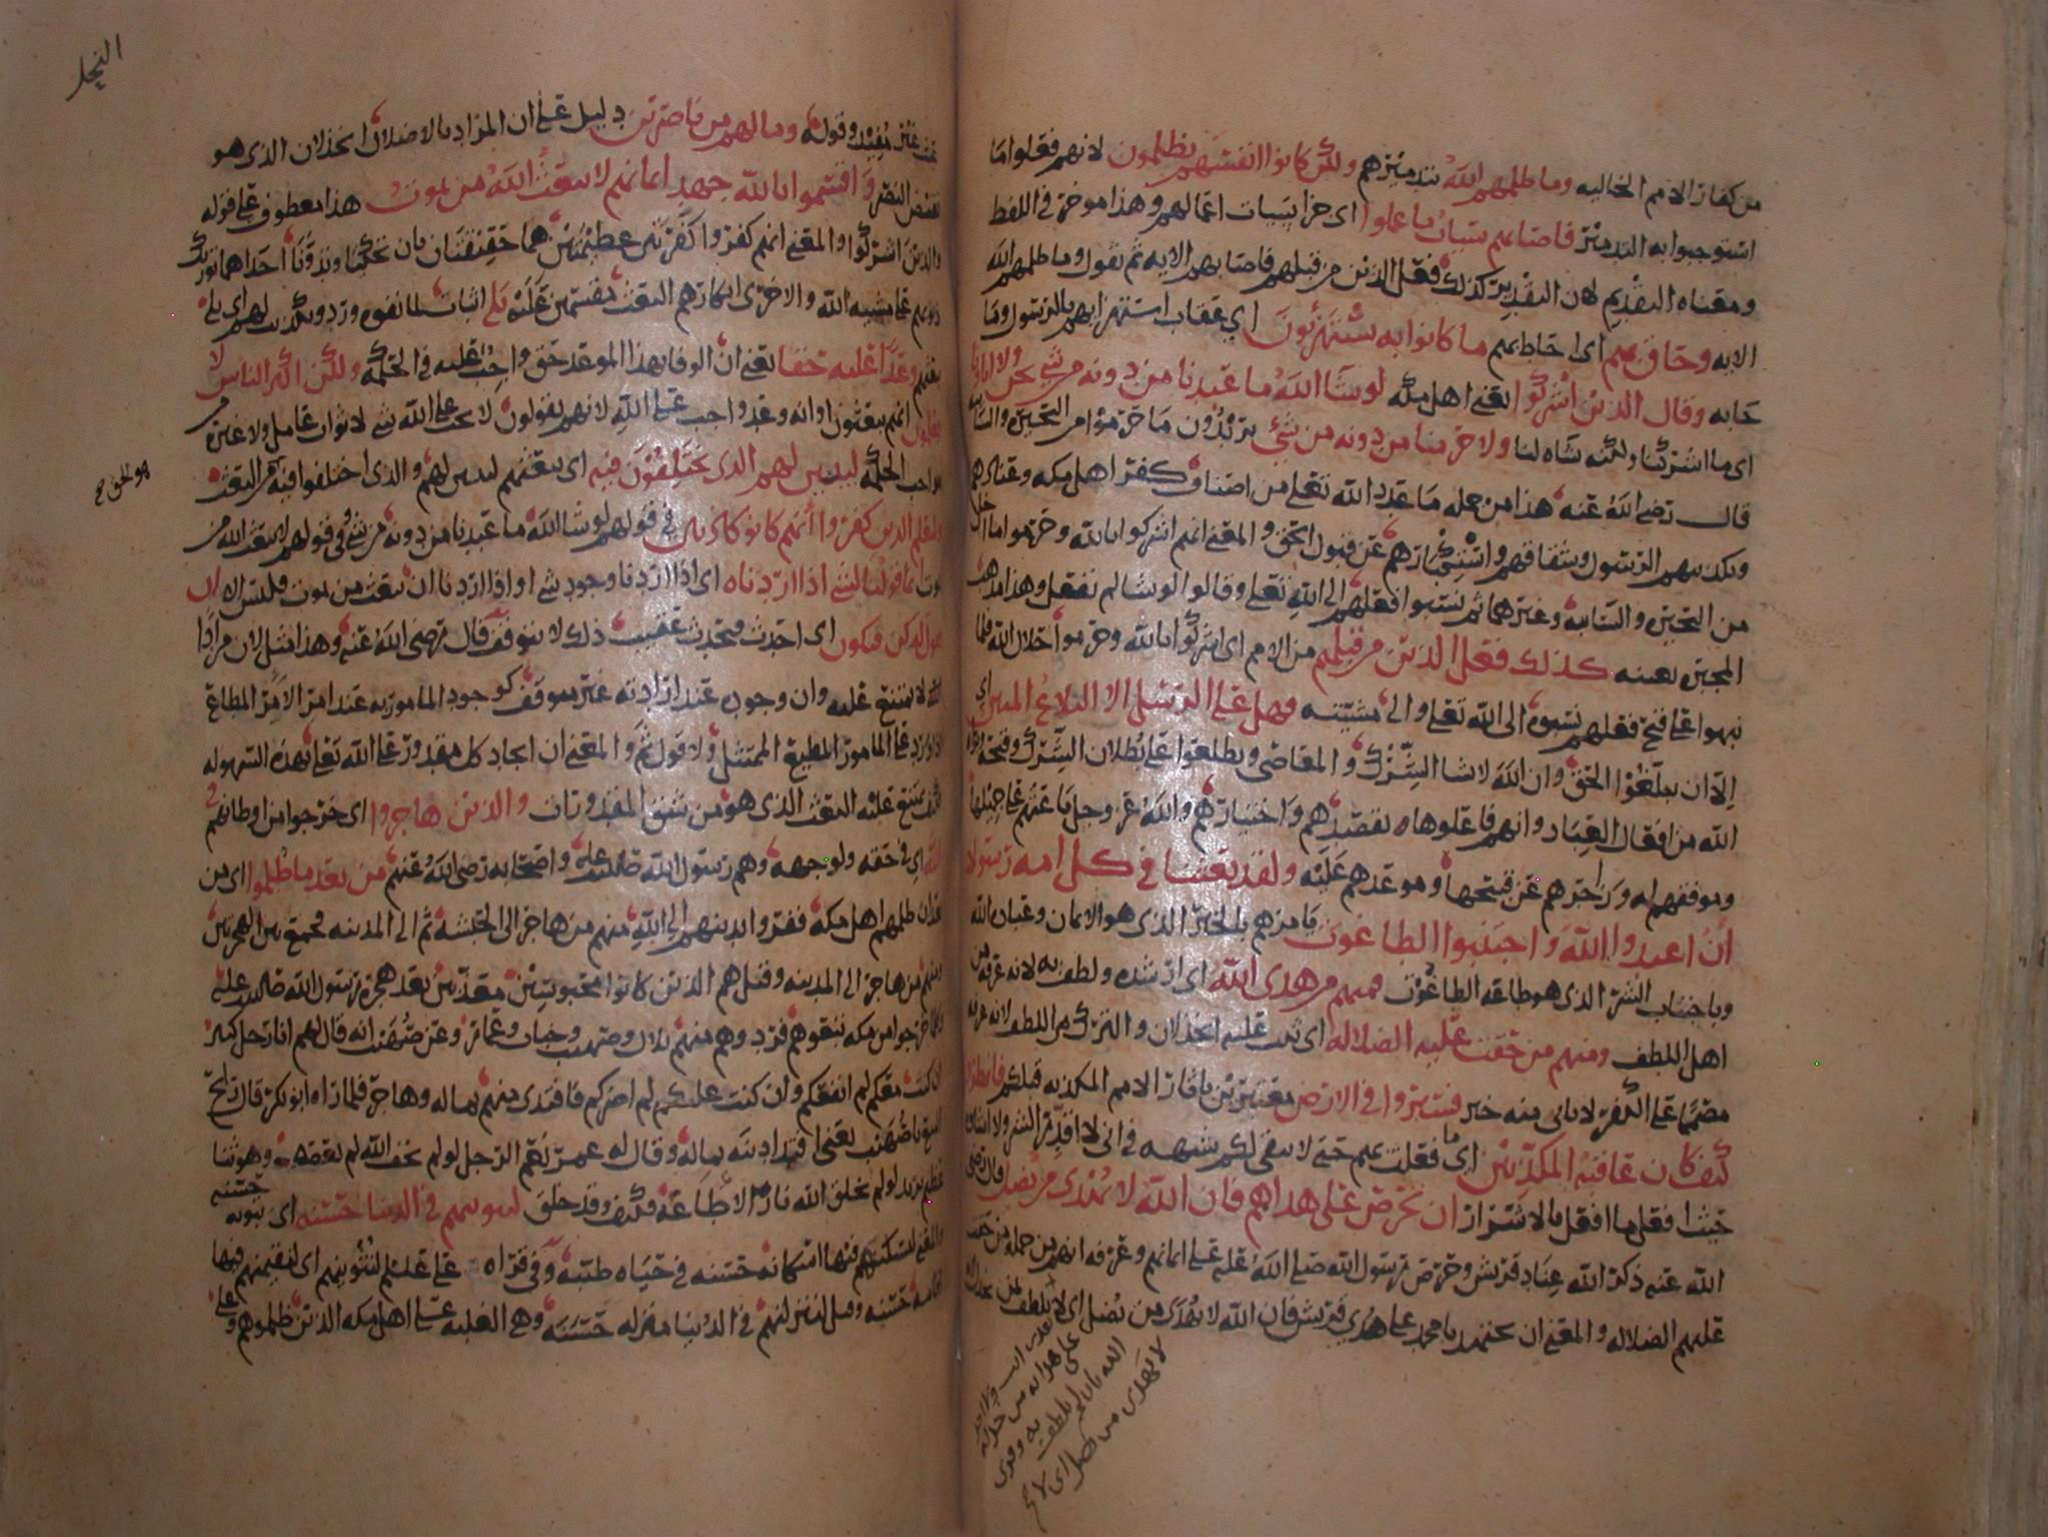 من كفار الامم الخاليه وما ظلمهم الله بتدميرهم ولكن كانوا انفسهم يظلمون لانهم فعلوا ما
استوجبوا به التدمير فاصابهم سيات ما عملوا اى جزا سيات اعمالهم وهذا موخر فى اللفظ
ومعناه التقديم لان التقدير كذلك فعل الذين من قبلهم فاصابهم الايه ثم نقول وما ظلمهم الله
الايه وحاق بهم اى احاط بهم ما كانوا به يستهزئون اي عقاب استهزايهم بالرسول وما
جا به وقال الذين اشركوا يعنى اهل مكه لو شا الله ما عبدنا من دونه من شي نحن ولا اباونا
اى ما اشركنا ولكنه شاه لنا ولا حرمنا من دونه من شئ يريدون ما حرموا من البحيره والسايبه
قال رضى الله عنه هذا من جمله ما عدد الله تعلى من اصناف كفر اهل مكه وعنادهم
وتكذيبهم الرسول وشقاقهم واستكبارهم عن قبول الحق والمعنى انهم اشركوا بالله وحرموا ما احل
من البحيره والسايبه وغيرهما ثم نسبوا فعلهم الى الله تعلى وقالوا لو شا لم نفعل وهذا مذهب
المجبره بعينه كذلك فعل الذين من قبلهم من الامم اى اشركوا بالله وحرموا حلال الله فلما
نبهوا على قبح فعلهم نسبوه الى الله تعلى والى مشيته فهل على الرسل الا البلاغ المبين اي
الا ان يبلغوا الحق وان الله لا يشا الشرك والمعاصى ويطلعوا على بطلان الشرك وقبحه
الله من افعال العباد وانهم فاعلوها بقصدهم واختيارهم والله عز وجل باعثهم على جميلها
وموفقهم له وزاجرهم عن قبيحها وموعدهم عليه ولقد بعثنا فى كل امه رسولا
ان اعبدوا الله واجتنبوا الطاغوت يامرهم بالخير الذى هو الايمان وعباده الله
وباجتناب الشر الذى هو طاعه الطاغوت فمنهم من هدى الله اى ارشده ولطف به لانه عرفه من
اهل اللطف ومنهم من حقت عليه الضلاله اى ثبت عليه الخذلان والترك من اللطف لانه عرفه
مصمما على الكفر لا ياتى منه خير فسيروا فى الارض معتبرين باثار الامم المكذبه قبلكم فانظروا
كيف كان عاقبه المكذبين اى ما فعلت بهم حتى لا يبقى لكم شبهه فى انى لا اقدر الشر ولا اشاه
حيث افعل ما افعل بالاشرار ان تحرص على هداهم فان الله لا يهدى من يضل قال رضى
الله عنه ذكر الله عناد قريش وحرص رسول الله صلى الله عليه على ايمانهم وعرفه انهم من جمله من حقت
عليهم الضلاله والمعنى ان تجتهد يا محمد على هدى قريش فان الله لا يهدى من يضل اى لا يلطف بمن
لا يهدى من يضل اى لا
النحل
وقوله وما لهم من ناصرين دليل على ان المراد بالاضلال الخذلان الذى هو
نقيض النصر واقسموا بالله جهد ايمانهم لا يبعث الله من يموت هذا معطوف على قوله
والذين اشركوا والمعنى انهم كفروا كفرتين عظيمتين هما حقيقتان بان تحكيا وتدونا احداهما
ذنوبهم على مشيه الله والاخرى انكارهم البعث مقسمين عليه بلى اثبات لما نفوه ورد وتكذيب لهم اى بلى
يبعثهم وعدا عليه حقا يعنى ان الوفا بهذا الموعد حق واجب عليه فى الحكمه ولكن اكثر الناس لا
يعلمون انهم يبعثون او انه وعد واجب على الله لانهم يقولون لا يجب على الله شى لا ثواب عامل ولا غيره من
مواجب الحكمه ليبين لهم الذى يختلفون فيه اى يبعثهم ليبين لهم والذى اختلفوا فيه البعث
هو الحق صح
وليعلم الذين كفروا انهم كانوا كاذبين فى قولهم لو شا الله ما عبدنا من دونه من شى وفى قولهم لا يبعث الله من
يموت انما قولنا لشى اذا اردناه اى اذا اردنا وجود شى او اذا اردنا ان نبعث من يموت فليس الا ان
نقول له كن فيكون اى احدث فيحدث عقيب ذلك لا يتوقف قال رضى الله عنه وهذا مثل لان مرادا
لا يمتنع عليه وان وجوده عند ارادته غير متوقف كوجود المامور به عند امر الامر المطاع
اذا ورد على المامور المطيع الممتثل ولا قول ثم والمعنى ان ايجاد كل مقدور على الله تعلى بهذه السهوله
فكيف يمتنع عليه البعث الذى هو من شق المقدورات والذين هاجروا اى خرجوا من اوطانهم فى
الله اى فى حقه ولوجهه وهم رسول الله صلى الله عليه واصحابه رضى الله عنهم من بعد ما ظلموا اى من
بعد ان ظلمهم اهل مكه ففروا بدينهم الى الله منهم من هاجر الى الحبشه ثم الى المدينه فجمع بين الهجرتين
ومنهم من هاجر الى المدينه وقيل هم الذين كانوا محبوسين معذبين بعد هجره رسول الله صلى الله عليه
وكلما خرجوا من مكه تبعوهم فرد وهم منهم بلال وصهيب وخباب وعمار وعن صهيب انه قال لهم انا رجل كبير
ان كنت معكم لم انفعكم وان كنت عليكم لم اضركم فافتدى منهم بماله وهاجر فلما راه ابو بكر قال ربح
البيع يا صهيب يعنى افتدا دينه بماله وقال له عمر نعم الرجل لو لم يخف الله لم يعصه وهو ثنا
عظيم يريد لو لم يخلق الله نارا لاطاعه فكيف وقد خلق لنبوينهم فى الدنيا حسنه اى تبوئه حسنه
فيها امكانه حسنه فى حياه طيبه وفى قراه على عليلم لنثوينهم اى لنقيمنهم فيها
اقامه حسنه وقيل لننزلنهم فى الدنيا منزله حسنه وهى الغلبه على اهل مكه الذين ظلموهم وعلى